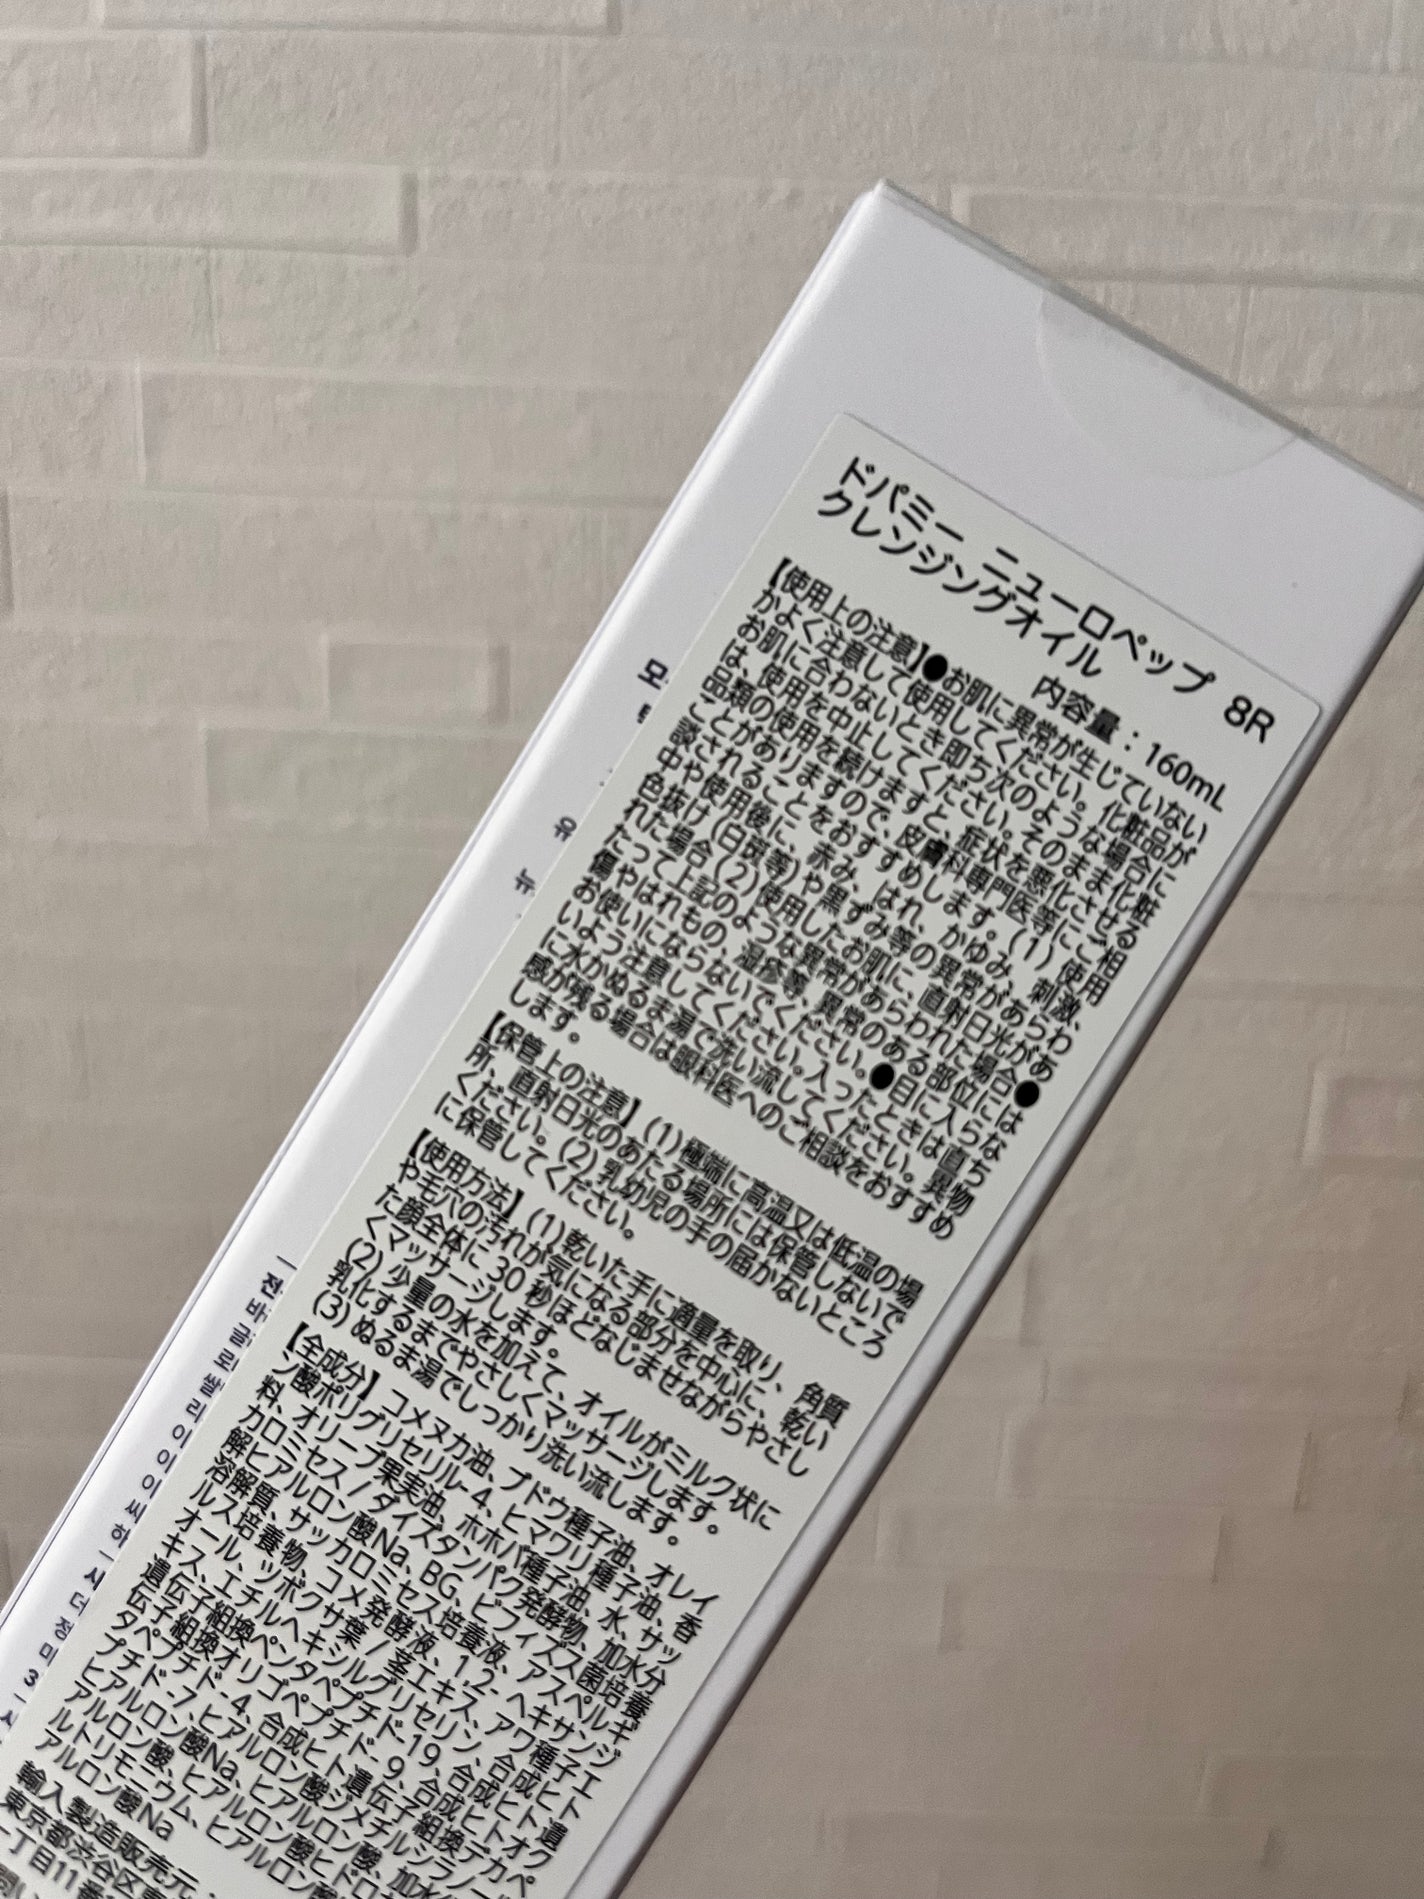 ドパミー ニューロペップ 8R
クレンジングオイル
内容量：160mL
【使用上の注意】●お肌に異常が生じていない
かよく注意して使用してください。化粧品が
お肌に合わないとき即ち次のような場合に
は、使用を中止してください。そのまま化粧
品類の使用を続けますと、症状を悪化させる
ことがありますので、皮膚科専門医等にご相
談されることをおすすめします。(1) 使用
中や使用後に、赤み、はれ、かゆみ、刺激、
色抜け (白斑等) や黒ずみ等の異常があらわ
れた場合 (2) 使用したお肌に、直射日光があ
たって上記のような異常があらわれた場合●
傷やはれもの、湿疹等、異常のある部位には
お使いにならないでください。●目に入らな
いよう注意してください。入ったときは直ち
に水かぬるま湯で洗い流してください。異物
感が残る場合は眼科医へのご相談をおすすめ
します。
【保管上の注意】(1) 極端に高温又は低温の場
所、直射日光のあたる場所には保管しないで
ください。(2) 乳幼児の手の届かないところ
に保管してください。
【使用方法】(1) 乾いた手に適量を取り、角質
や毛穴の汚れが気になる部分を中心に、乾い
た顔全体に 30 秒ほどなじませながらやさし
くマッサージします。
(2) 少量の水を加えて、オイルがミルク状に
乳化するまでやさしくマッサージします。
(3) ぬるま湯でしっかり洗い流します。
【全成分】コメヌカ油、ブドウ種子油、オレイ
ン酸ポリグリセリル-4、ヒマワリ種子油、香
料、オリーブ果実油、ホホバ種子油、水、サッ
カロミセス / ダイズタンパク発酵物、加水分
解ヒアルロン酸Na、BG、ビフィズス菌培養
溶解質、サッカロミセス培養液、アスペルギ
ルス培養物、コメ発酵液、1,2- ヘキサンジ
オール、ツボクサ葉 / 茎エキス、アワ種子エ
キス、エチルヘキシルグリセリン、合成ヒト
遺伝子組換ペンタペプチド-19、合成ヒト遺
伝子組換オリゴペプチド- 9、合成ヒトオク
タペプチド-4、合成ヒト遺伝子組換デカペ
プチド-7、ヒアルロン酸ジメチルシラノール
ヒアルロン酸Na、ヒアルロン酸、加水
アルロン酸、ヒアルロン酸ヒドロ
ルトリモニウム、ヒアルロン酸
アルロン酸Na
輸入製造販売元
東京都渋谷区
一丁目11番
모
유
뉴
전
바
글
로
쌀
리
이
이
이
씨
하
서
더
정
미
3